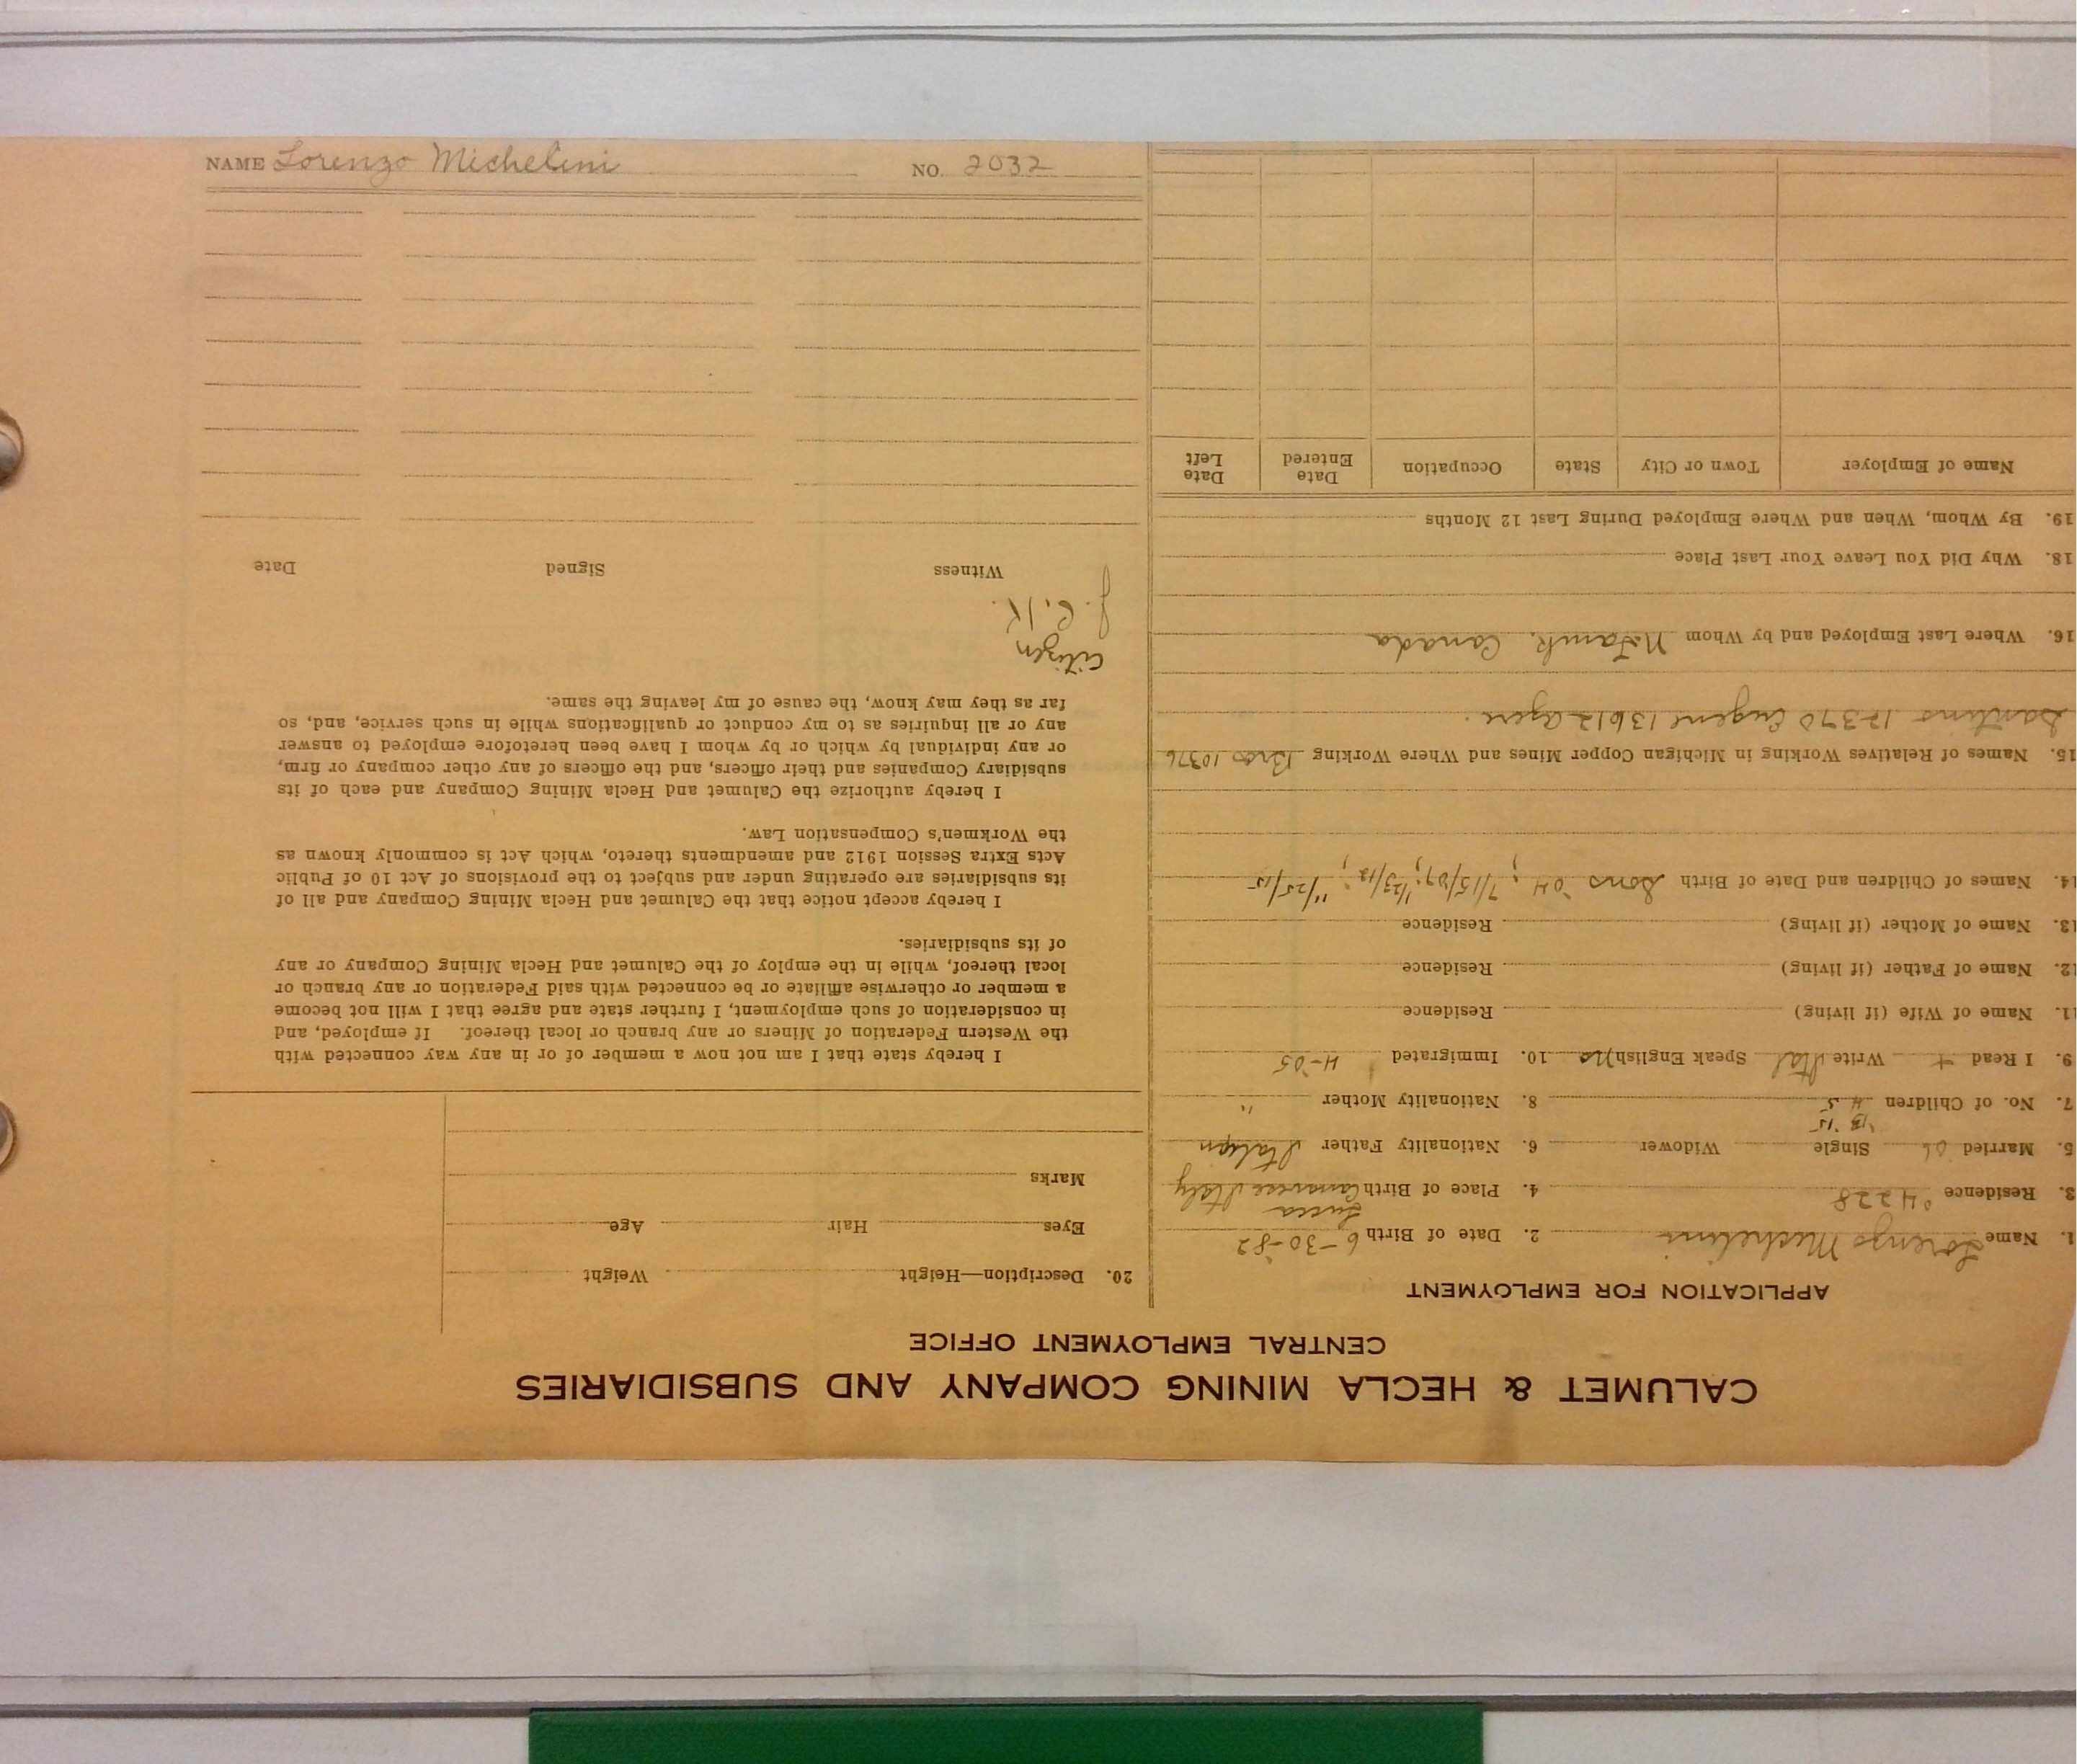 NAME Lorenzo Michelini NO. 2032
CALUMET & HECLA MINING COMPANY AND SUBSIDIARIES
CENTRAL EMPLOYMENT OFFICE
APPLICATION FOR EMPLOYMENT
1. Name Lorenzo Michelini 2. Date of Birth 6-30-82
3. Residence 4228 4. Place of Birth Lucca Italy
5. Married 06 Single Widower 6. Nationality Father Italian
'13 '15
7. No. of Children 4 5 8. Nationality Mother "
9. I Read + Write Ital Speak English No 10. Immigrated 4-05
11. Name of Wife (if living) Residence
12. Name of Father (if living) Residence
13. Name of Mother (if living) Residence
14. Names of Children and Date of Birth Sons '04; 7/15/07; 1/23/12; 11/25/15
15. Names of Relatives Working in Michigan Copper Mines and Where Working Bros 10376
Santino 12370 Eugene 13612
16. Where Last Employed and by Whom Canada
18. Why Did You Leave Your Last Place
19. By Whom, When and Where Employed During Last 12 Months
Name of Employer Town or City State Occupation Date Entered Date Left
20. Description—Height Weight
Eyes Hair Age
Marks
I hereby state that I am not now a member of or in any way connected with
the Western Federation of Miners or any branch or local thereof. If employed, and
in consideration of such employment, I further state and agree that I will not become
a member or otherwise affiliate or be connected with said Federation or any branch or
local thereof, while in the employ of the Calumet and Hecla Mining Company or any
of its subsidiaries.
I hereby accept notice that the Calumet and Hecla Mining Company and all of
its subsidiaries are operating under and subject to the provisions of Act 10 of Public
Acts Extra Session 1912 and amendments thereto, which Act is commonly known as
the Workmen's Compensation Law.
I hereby authorize the Calumet and Hecla Mining Company and each of its
subsidiary Companies and their officers, and the officers of any other company or firm,
or any individual by which or by whom I have been heretofore employed to answer
any or all inquiries as to my conduct or qualifications while in such service, and, so
far as they may know, the cause of my leaving the same.
Citizen
J. C. K.
Witness Signed Date